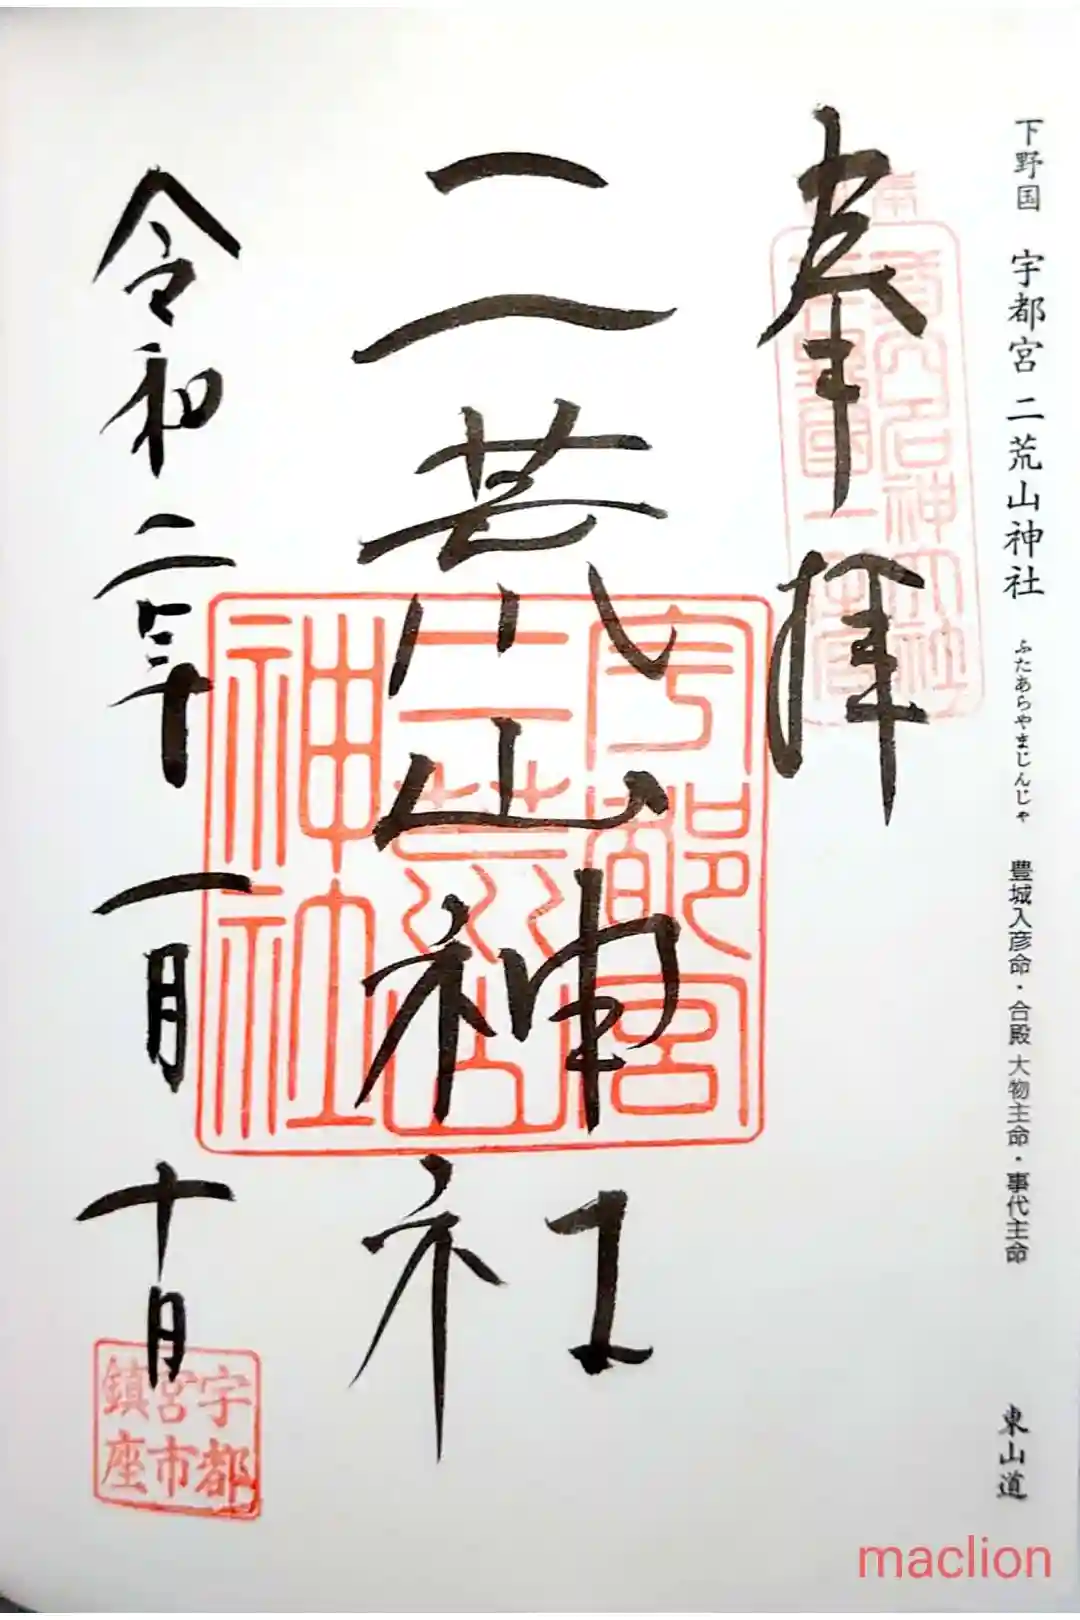 下野国 宇都宮 二荒山神社 ふたあらやまじんじゃ 豊城入彦命・合殿 大物主命・事代主命 東山道
奉拝
二荒山神社
宇都宮
二荒山
神社
令和二年 一月 十日
宇都
宮市
鎮座
maclion